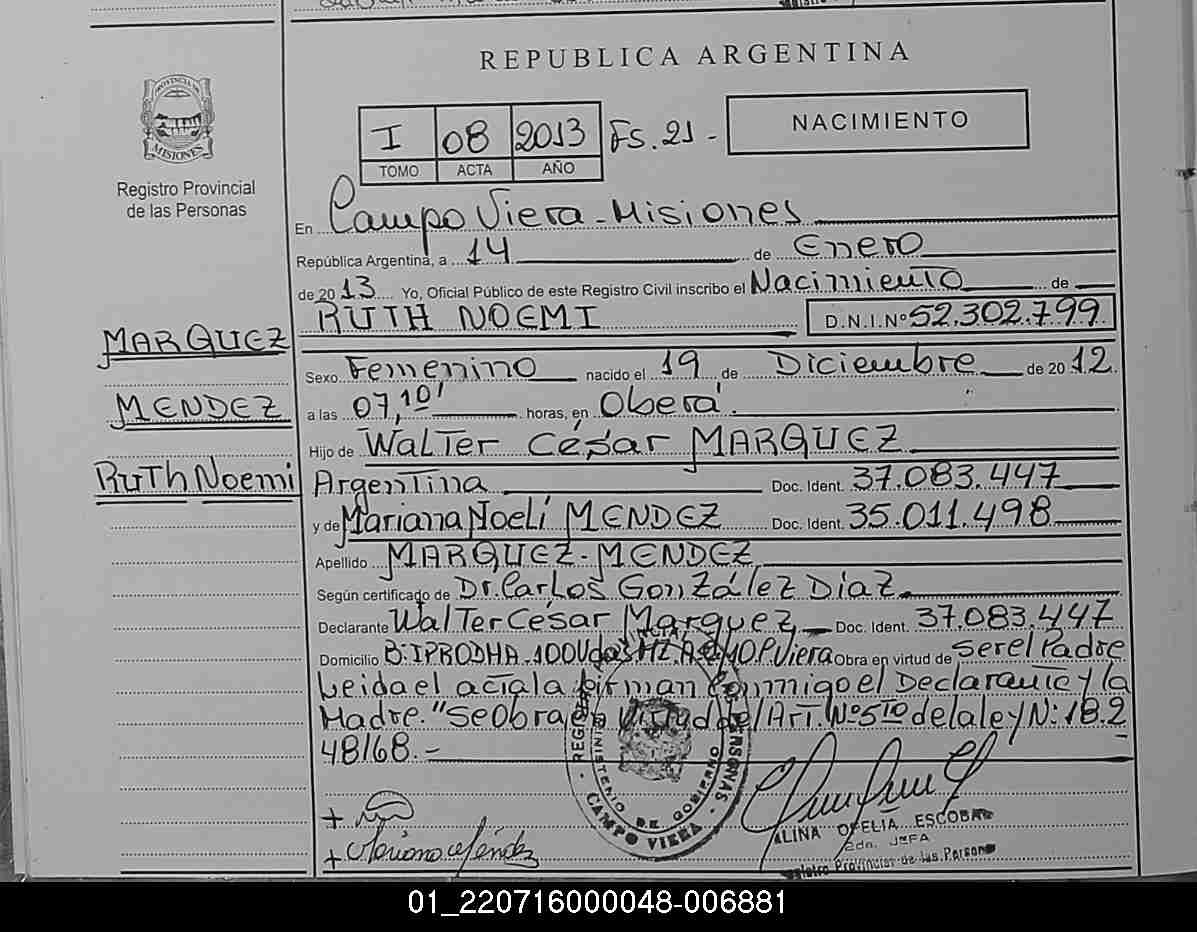 REPUBLICA ARGENTINA
PROVINCIA DE
MISIONES
Registro Provincial
de las Personas
I 08 2013 Fs. 21 -
TOMO ACTA AÑO
NACIMIENTO
En Campo Viera - Misiones
República Argentina, a 14 de Enero
de 2013 Yo, Oficial Público de este Registro Civil inscribo el Nacimiento de
RUTH NOEMI D.N.I.Nº 52.302.799
MARQUEZ
MENDEZ
Ruth Noemi
Sexo Femenino nacido el 19 de Diciembre de 2012.
a las 07,10' horas, en Oberá.
Hijo de Walter César MARQUEZ
Argentina Doc. Ident. 37.083.447
y de Mariana Noelí MENDEZ Doc. Ident. 35.011.498
Apellido MARQUEZ - MENDEZ
Según certificado de Dr. Carlos González Díaz.
Declarante Walter César Marquez Doc. Ident. 37.083.447
Domicilio B: IPRODHA. 100 Vdas MZ. A P. Viera Obra en virtud de ser el Padre
Leida el acta la firman conmigo el Declarante y la
Madre. "Se Obra en Virtud del Art. Nº 5to de la ley N: 18.2
48/68.-
REGISTRO PERSONAS
MINISTERIO DE GOBIERNO
CAMPO VIERA
+
+ Mariana Méndez
ALINA OFELIA ESCOBAR
JEFA
Registro Provincial de las Personas
01_220716000048-006881